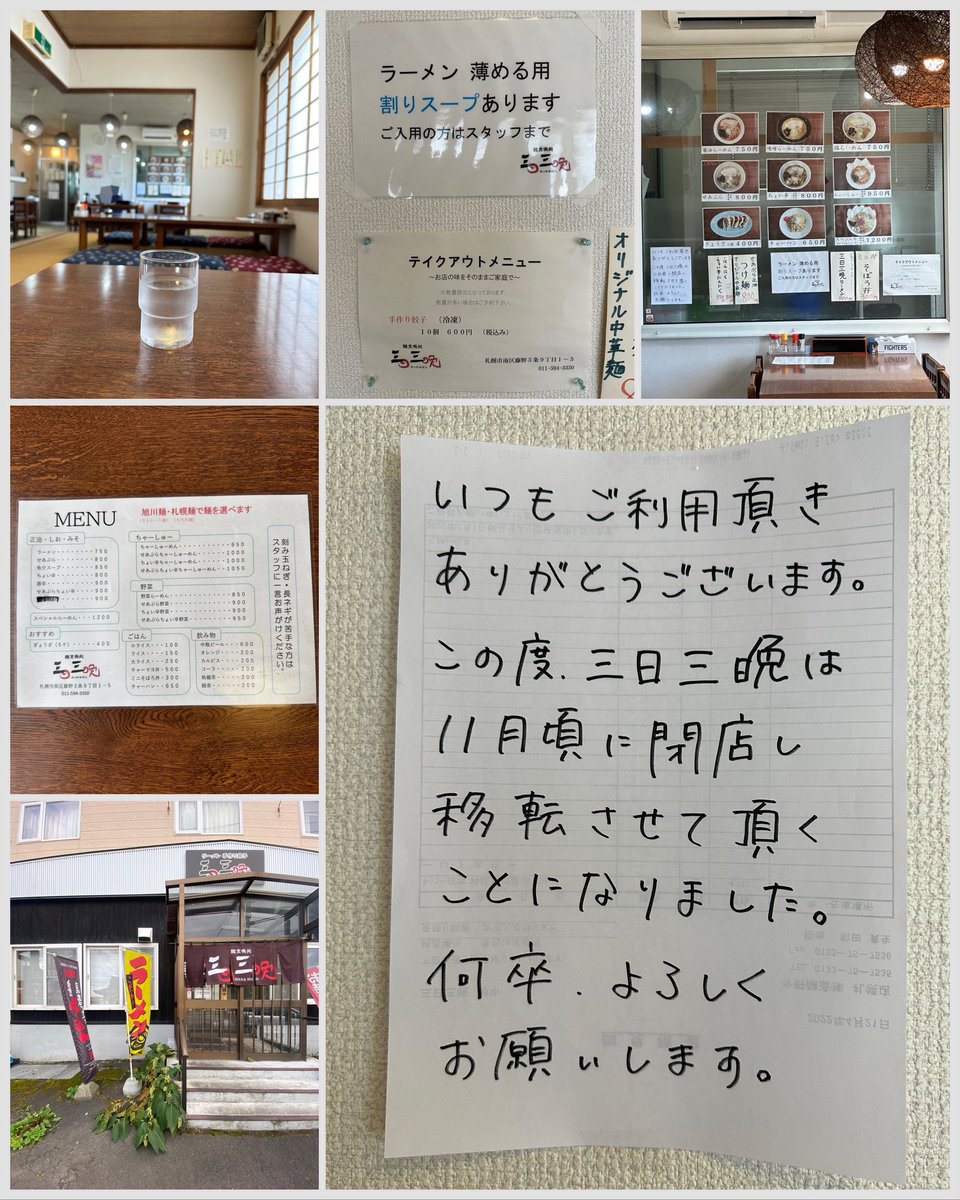 ラーメン 薄める用
割りスープあります
ご入用の方はスタッフまで
三日三晩
テイクアウトメニュー
〜お店の味をそのままご家庭で〜
※数量限定となっております。
数量が多い場合はご予約下さい。
手作り餃子 (冷凍)
10個 600円 (税込み)
三日三晩
札幌市南区藤野3条9丁目1-5
011-594-3350
オリジナル中華麺
醤油らーめん 750円
味噌らーめん 750円
塩らーめん 750円
せあぶら 800円
ちょい辛 800円
ちゃーしゅー 950円
ぎょうざ5個 400円
チャーハン 650円
1200円
ラーメン 薄める用
割りスープあります
テイクアウトメニュー
FIGHTERS
MENU
旭川麺・札幌麺で麺を選べます
正油・しお・みそ
ラーメン 750
せあぶら 800
魚介スープ 850
ちょい辛 800
激辛 900
せあぶらちょい辛 900
900
スペシャルらーめん 1200
おすすめ
ぎょうざ(5ケ) 400
三日三晩
札幌市南区藤野3条9丁目1-5
011-594-3350
ちゃーしゅー
ちゃーしゅーめん 950
せあぶらちゃーしゅーめん 1000
ちょい辛ちゃーしゅーめん 1000
せあぶらちょい辛ちゃーしゅーめん 1050
野菜
野菜らーめん 850
せあぶら野菜 900
ちょい辛野菜 900
せあぶらちょい辛野菜 950
ごはん
小ライス 100
ライス 150
大ライス 250
チャーマヨ丼 500
ミニそぼろ丼 300
チャーハン 650
飲み物
中瓶ビール 600
オレンジ 200
カルピス 200
コーラ 200
烏龍茶 200
緑茶 200
刻み玉ねぎ・長ネギが苦手な方は
スタッフに一言お声がけください。
ラーメン 手作り餃子
三日三晩
三日三晩
ラーメン
いつもご利用頂き
ありがとうございます。
この度、三日三晩は
11月頃に閉店し
移転させて頂く
ことになりました。
何卒、よろしく
お願いします。
2022年4月21日